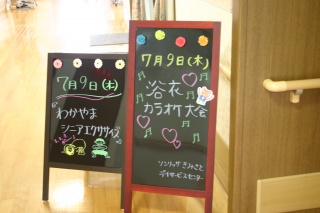 7月9日(木)
わかやま
シニアエクササイズ
7月9日(木)
浴衣
カラオケ大会
ソンリッサ きみさと
デイサービスセンター